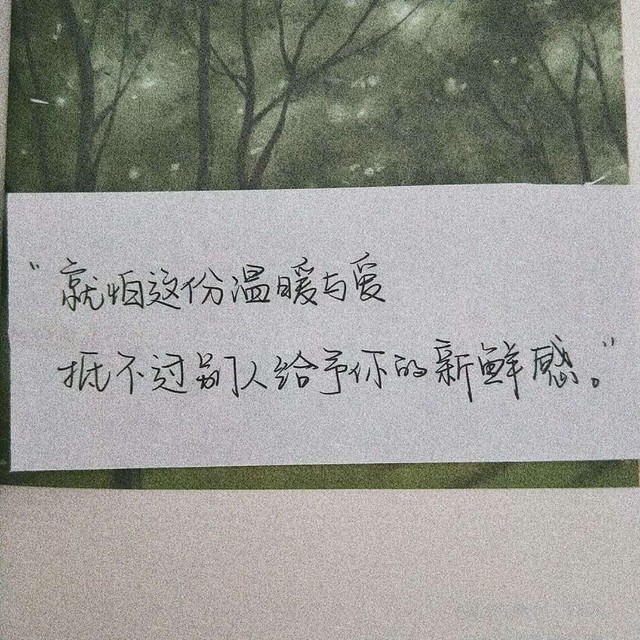 “就怕这份温暖与爱
抵不过别人给予你的新鲜感。”